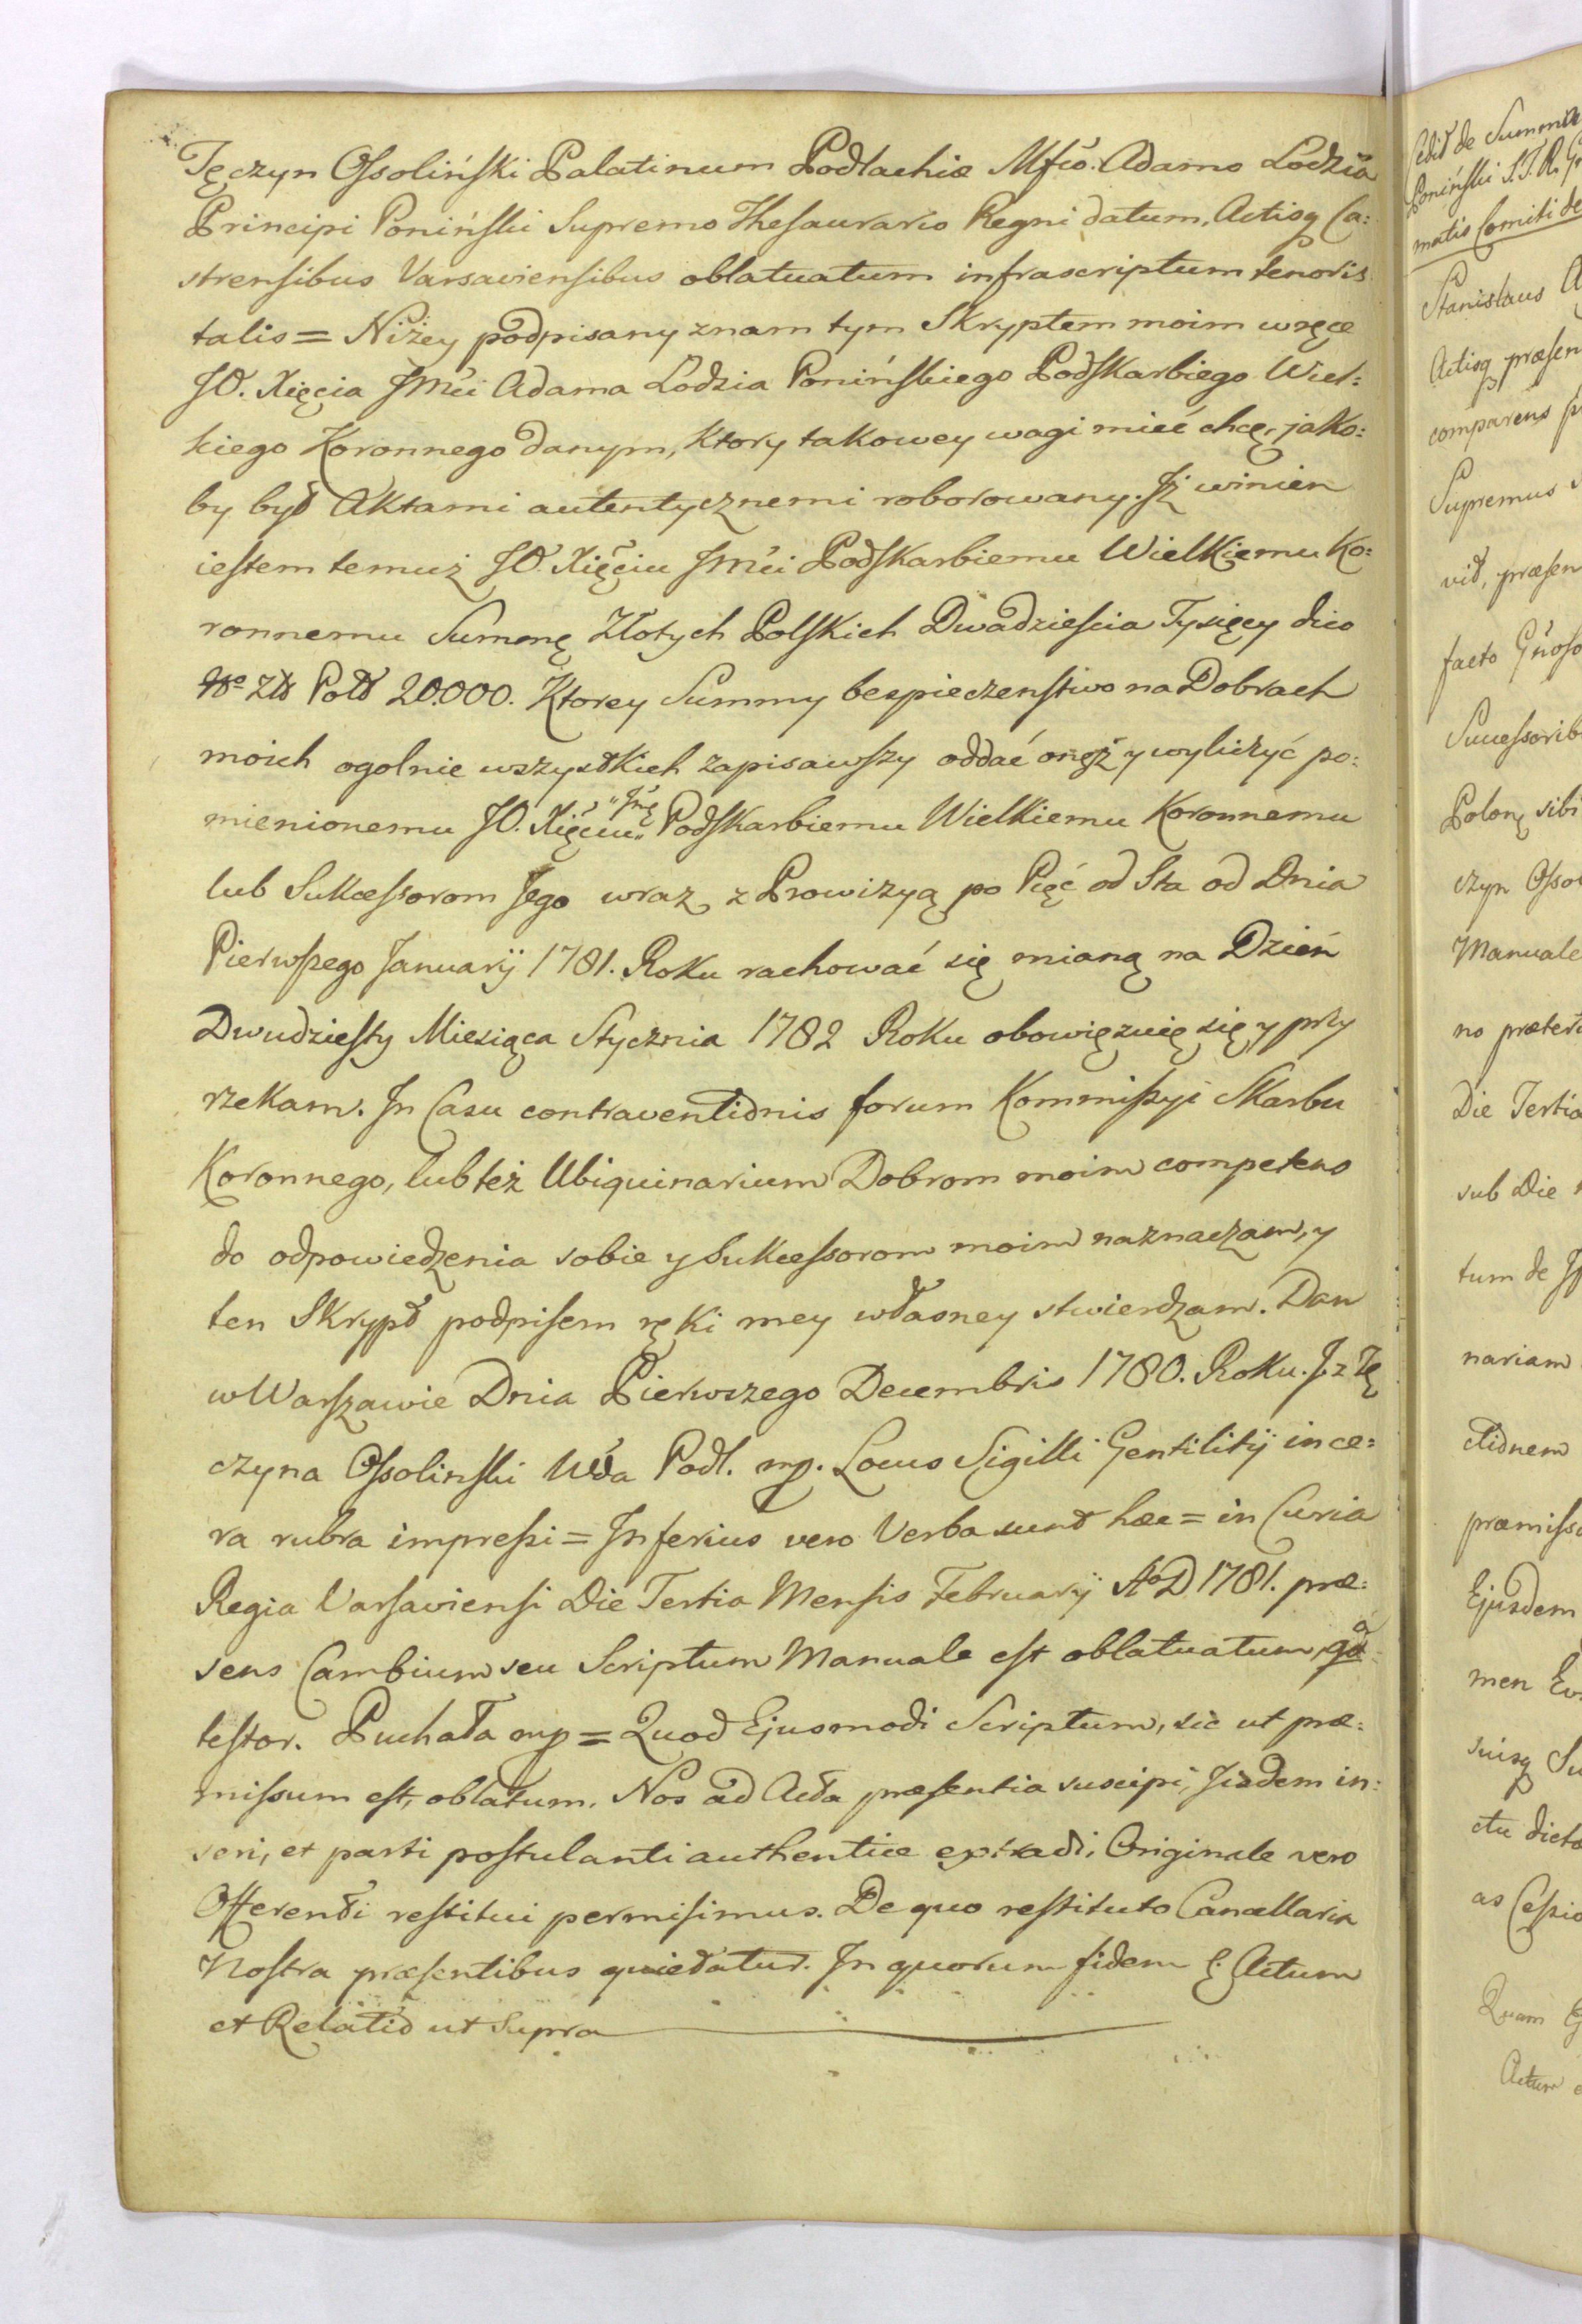 Tęczyn Ossoliński Palatinum Podlachiæ Mfco. Adamo Lodzia
Principi Poniński Supremo Thesaurario Regni datum, Actisq Ca:
strensibus Varsaviensibus oblatuatum infrascriptum tenoris
talis = Niżey podpisany znam tym Skryptem moim w ręce
JO. Xięcia JMci Adama Lodzia Ponińskiego Podskarbiego Wiel:
kiego Koronnego danym, Ktory takowey wagi mieć chcę, jako:
by był Aktami autentycznemi roborowany. Iż winien
iestem temuż JO. Xięciu JMci Podskarbiemu Wielkiemu Ko:
ronnemu Summę Złotych Polskich Dwadzieścia Tysięcy dico
Nro Złł Poll 20.000. Ktorey Summy bespieczenstwo na Dobrach
moich ogolnie wszystkich zapisawszy oddać onęż y wyliczyć po:
mienionemu JO. Xięciu "Jmę" Podskarbiemu Wielkiemu Koronnemu
lub Sukcessorom Jego wraz z Prowizyą po Pięć od Sta od Dnia
Pierwszego Januarij 1781. Roku rachować się mianą na Dzień
Dwudziesty Miesiąca Stycznia 1782 Roku obowięzuię się y przy
rzekam. In Casu contraventionis forum Kommissyi Skarbu
Koronnego, lub też Ubiquinarium Dobrom moim competens
do odpowiedzenia sobie y Sukcessorom moim naznaczam, y
ten Skrypt podpisem ręki mey własney stwierdzam. Dan
w Warszawie Dnia Pierwszego Decembris 1780. Roku. J z Tę
czyna Ossolinski Wda Podl. mp. Locus Sigilli Gentilitij in ce:
ra rubra impressi = Inferius vero Verba sunt hæc = in Curia
Regia Varsaviensi Die Tertia Mensis Februarij AoD 1781. præ:
sens Cambium seu Scriptum Manuale est oblatuatum, qd
testor. Puchała mp = Quod Ejusmodi Scriptum, sic ut præ:
missum est, oblatum. Nos ad Acta præsentia suscipi, Jisdem in:
seri, et parti postulanti authentice extradi, Originale vero
Offerenti restitui permisimus. De quo restituto Cancellaria
Nostra præsentibus quietatur. In quorum fidem &. Actum
et Relatio ut Supra
Cedit de Summa
Poniński S.T.R.
matis Comiti de
Stanislaus
Actisq præsen
comparens
Supremus
vit, præsen
facto Gnoso
Successorib
Polonę sibi
czyn Ossol
Manuale
no præter
Die Tertia
sub Die
tum de
nariam
ctionem
præmisso
Ejusdem
men
suisq Su
ctu dicto
as Cessio
Quam
Actum